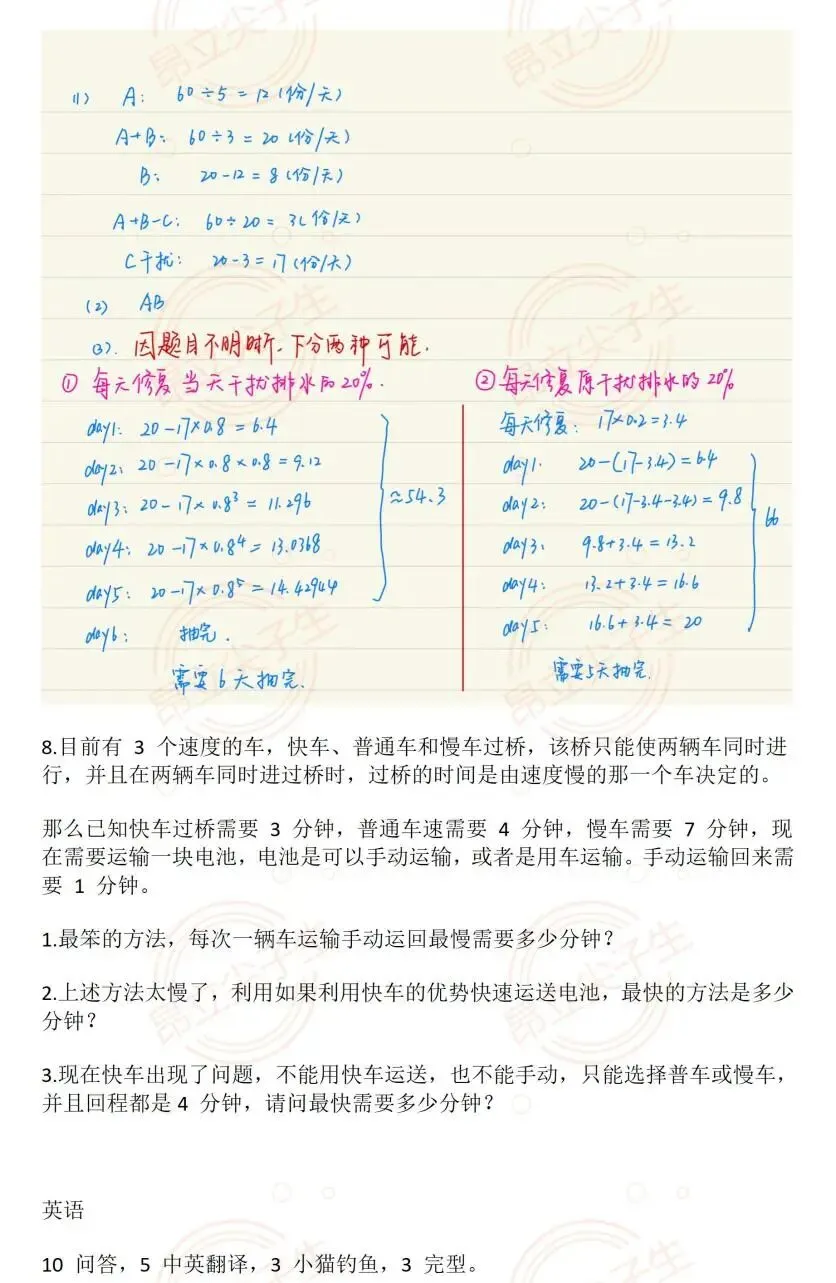 (1) A: 60÷5=12(份/天)
A+B: 60÷3=20(份/天)
B: 20-12=8(份/天)
A+B-C: 60÷20=3(份/天)
C干扰: 20-3=17(份/天)
(2) AB
(3). 因题目不明晰.下分两种可能.
① 每天修复当天干扰排水的20%.
day1: 20-17×0.8=6.4
day2: 20-17×0.8×0.8=9.12
day3: 20-17×0.8³=11.296
day4: 20-17×0.8⁴=13.0368
day5: 20-17×0.8⁵=14.42944
≈54.3
day6: 抽完.
需要6天抽完.
②每天修复原干扰排水的20%
每天修复: 17×0.2=3.4
day1. 20-(17-3.4)=6.4
day2: 20-(17-3.4-3.4)=9.8
day3: 9.8+3.4=13.2
day4: 13.2+3.4=16.6
day5: 16.6+3.4=20
66
需要5天抽完.
8.目前有 3 个速度的车，快车、普通车和慢车过桥，该桥只能使两辆车同时进
行，并且在两辆车同时进过桥时，过桥的时间是由速度慢的那一个车决定的。
那么已知快车过桥需要 3 分钟，普通车速需要 4 分钟，慢车需要 7 分钟，现
在需要运输一块电池，电池是可以手动运输，或者是用车运输。手动运输回来需
要 1 分钟。
1.最笨的方法，每次一辆车运输手动运回最慢需要多少分钟？
2.上述方法太慢了，利用如果利用快车的优势快速运送电池，最快的方法是多少
分钟？
3.现在快车出现了问题，不能用快车运送，也不能手动，只能选择普车或慢车，
并且回程都是 4 分钟，请问最快需要多少分钟？
英语
10 问答，5 中英翻译，3 小猫钓鱼，3 完型。
昂立尖子生
昂立尖子生
昂立尖子生
昂立尖子生
昂立尖子生
昂立尖子生
昂立尖子生
昂立尖子生